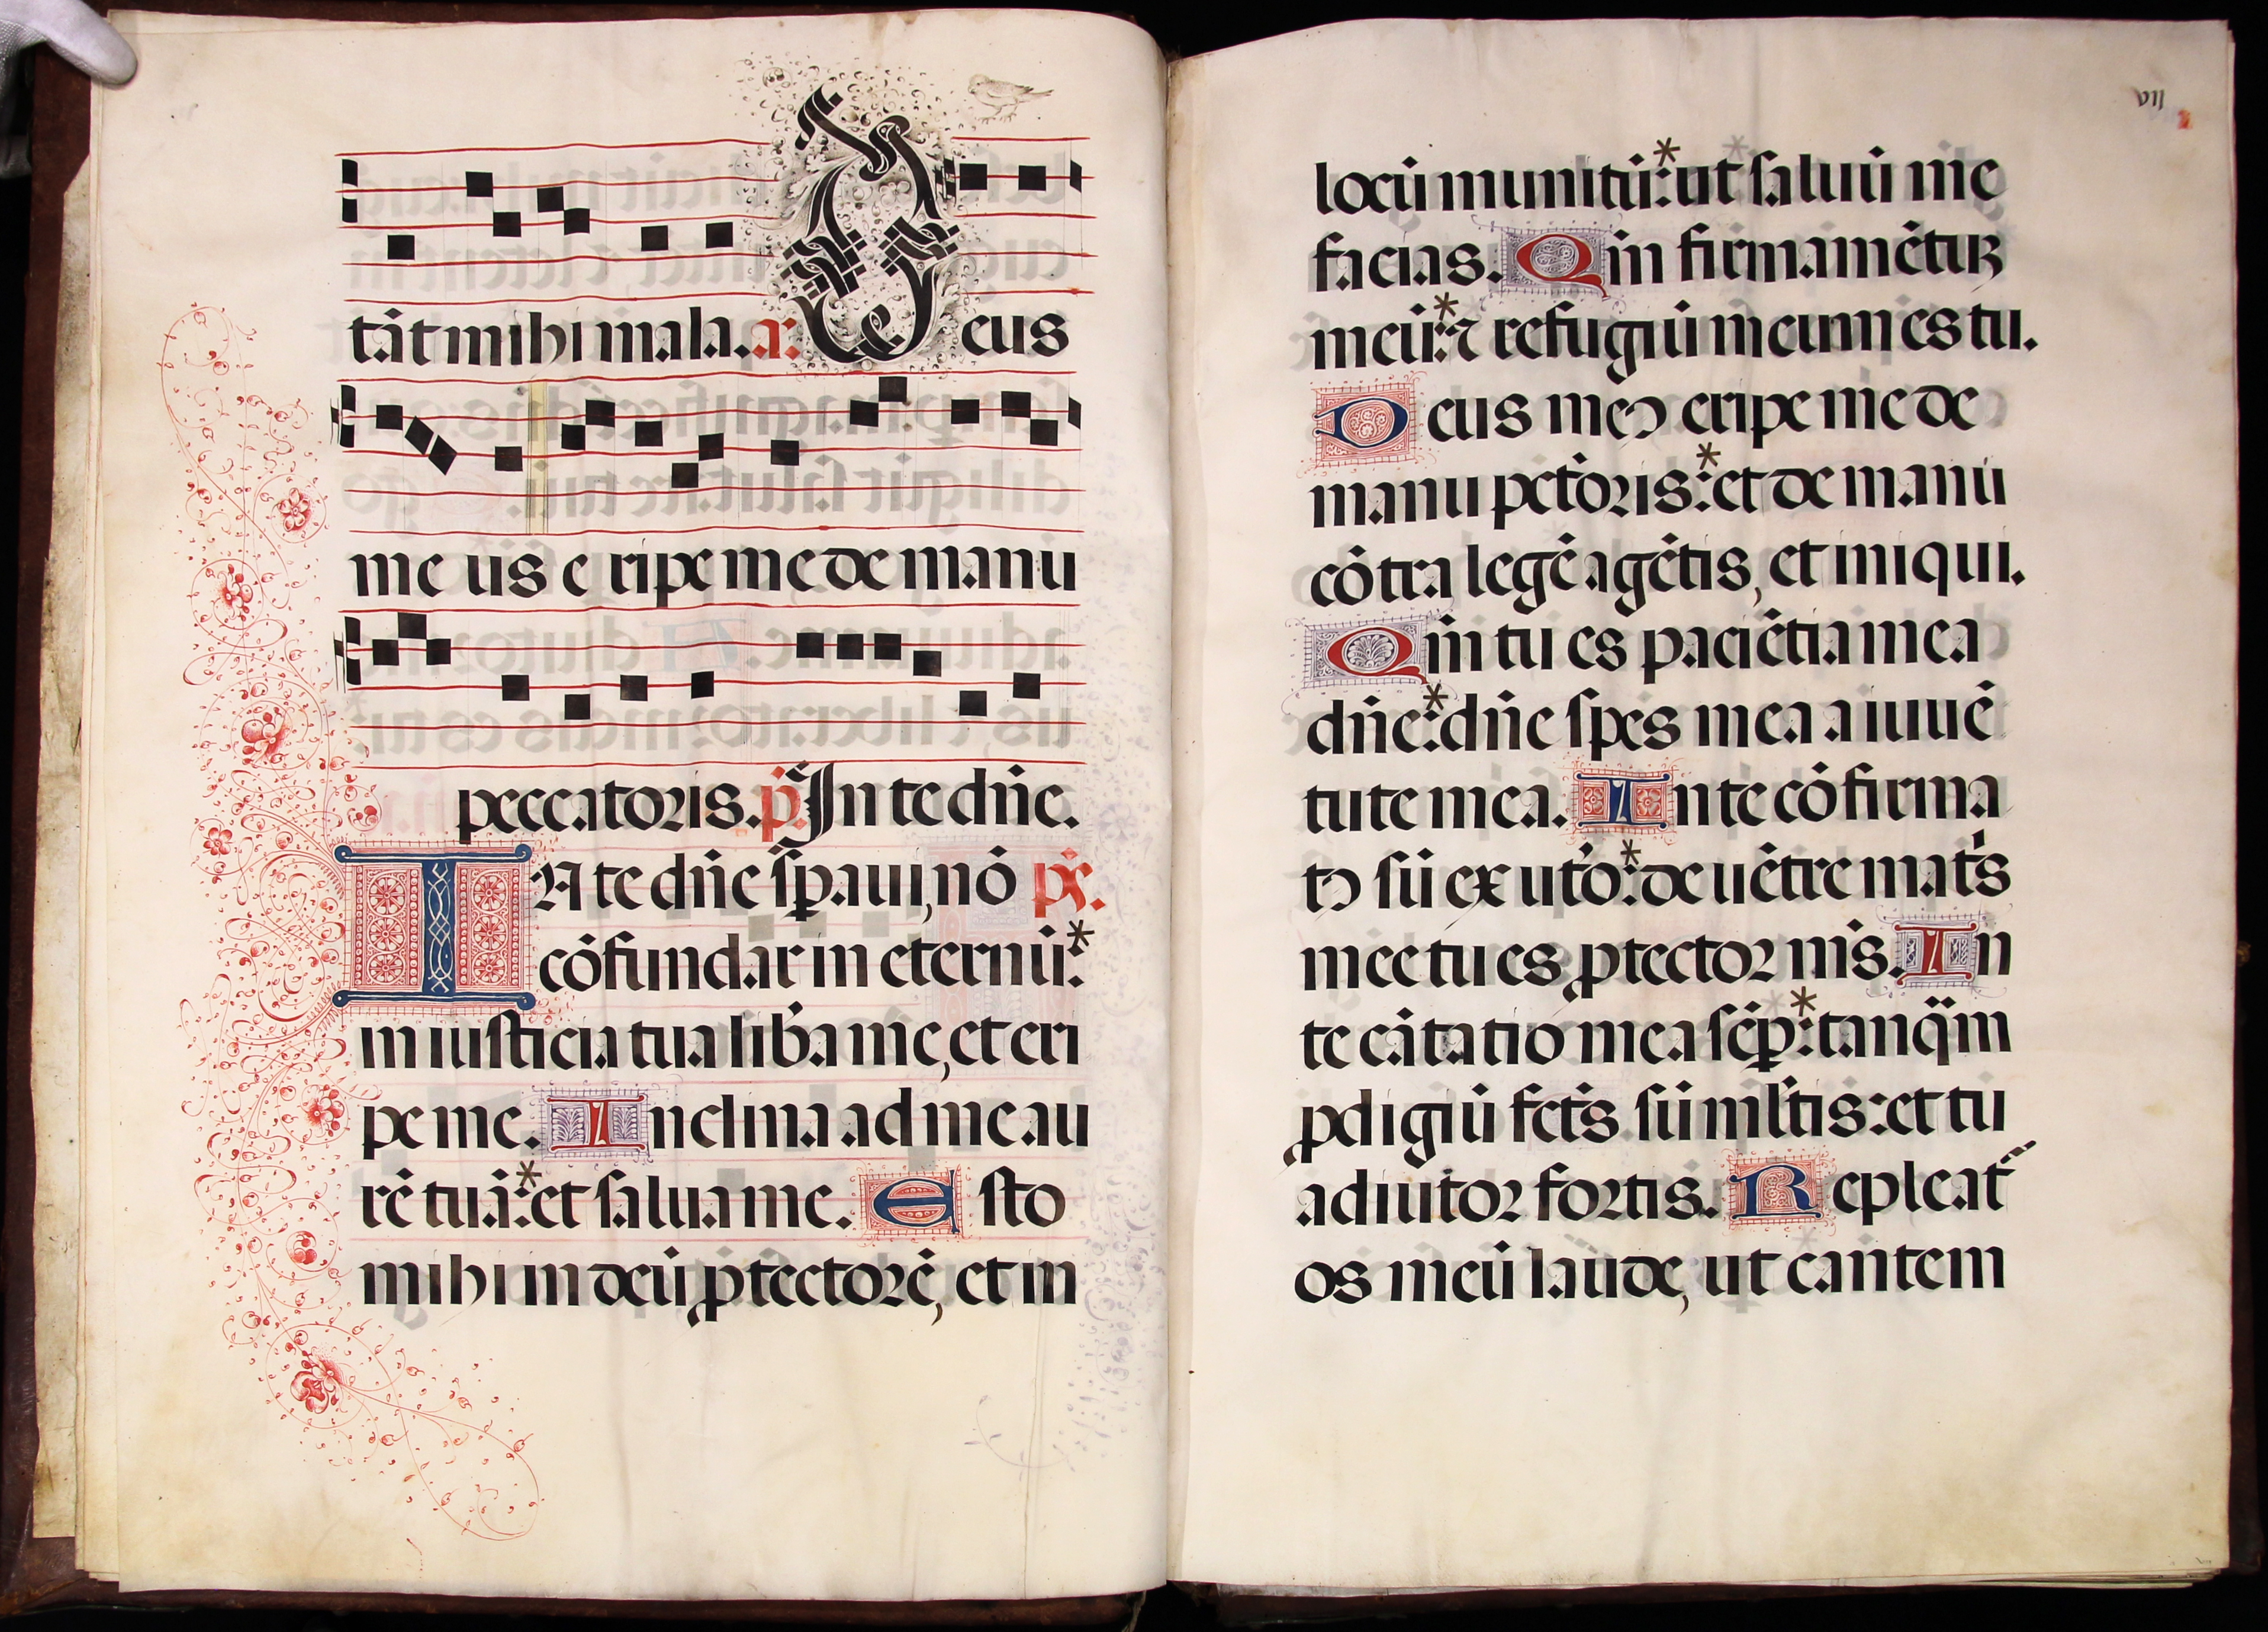 tāt mihi mala. a: Deus
me us e ripe me de manu
peccatoris. p̄. In te dn̄e.
IN te dn̄e speraui, nō ps̄.
cōfundar in eternū:*
in iusticia tua lib̄a me, et eri
pe me. Inclina ad me au
rē tuā:* et salua me. Esto
mihi in deū ꝓtectorē, et in
VII
locū munitū:* ut saluū me
facias. Qm̄ firmamētuꝝ
meū:* ⁊ refugiū meum es tu.
Deus meꝰ eripe me de
manu pctōris:* et de manu
cōtra legē agētis, et iniqui.
Qm̄ tu es paciētia mea
dn̄e:* dn̄e spes mea a iuuē
tute mea. In te cōfirma
tꝰ sū ex uto᷑:* de uētre mat᷑s
mee tu es ꝓtector m̄s. In
te cātatio mea sēp̲:* tanq̄m
ꝓdigiū fct᷑s sū ml̄tis: et tu
adiutor fortis. Repleat᷑
os meū laude, ut cantem